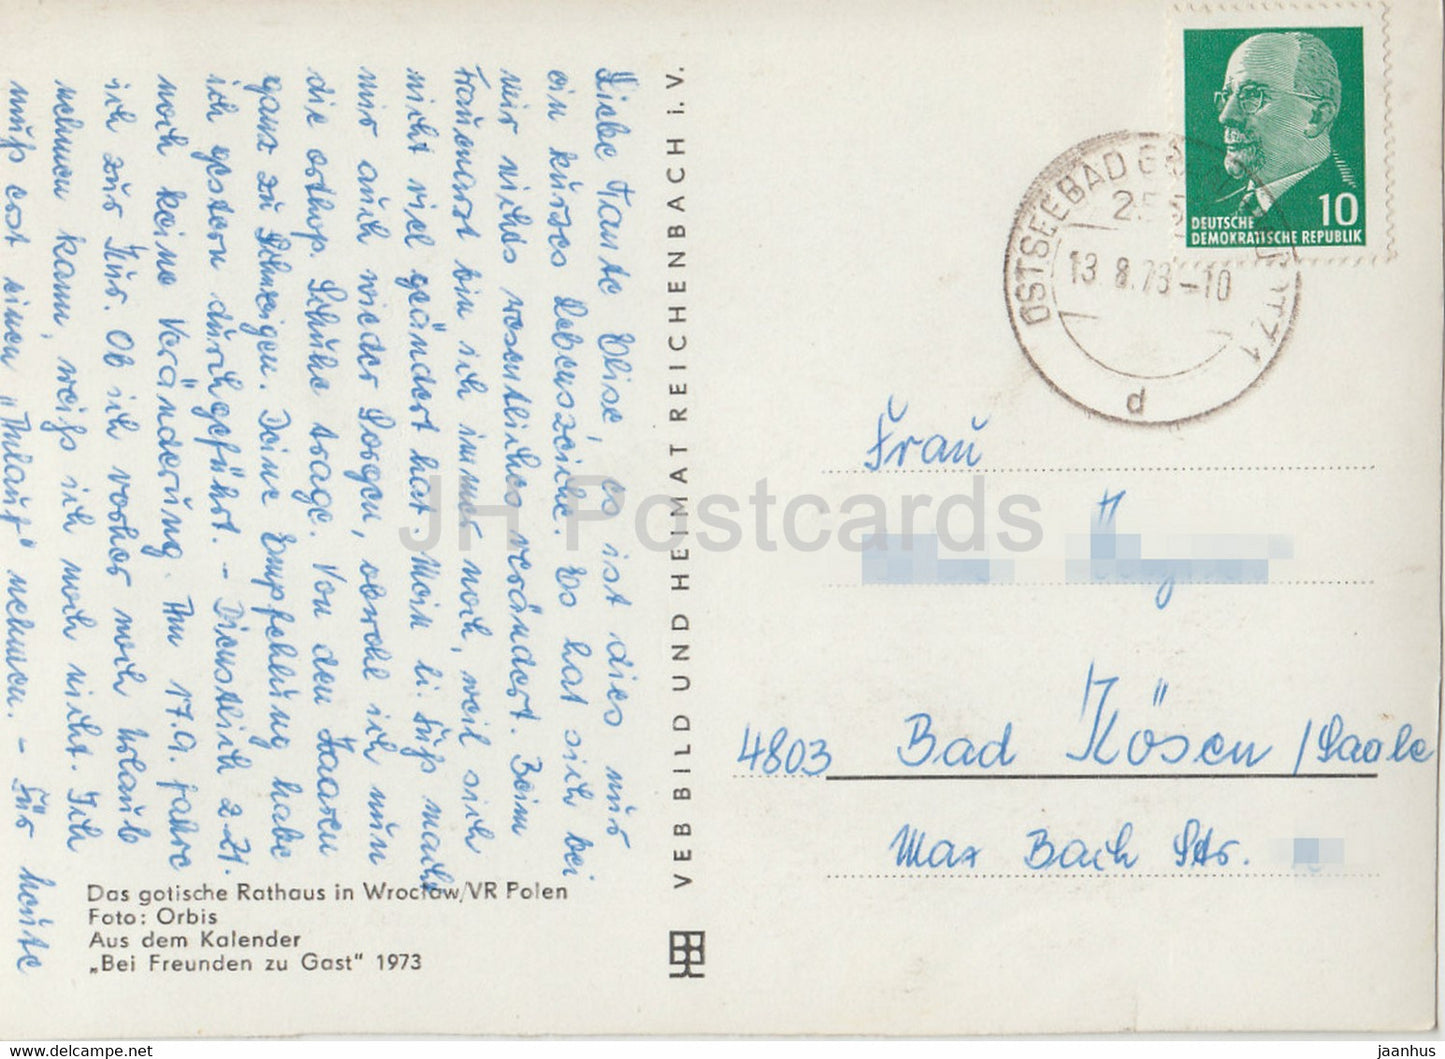 Liebe Tante Elise, es ist dies nur
ein kurzes Lebenszeichen. Es hat sich bei
mir nichts wesentliches verändert. Beim
Frauenarzt bin ich immer noch, weil sich
nicht viel geändert hat. Mein li. Fuß macht
mir auch wieder Sorgen, obwohl ich nun
die orthop. Schuhe trage. Von den Haaren
ganz zu schweigen. Deine Empfehlung habe
ich gestern durchgeführt. – Dienstlich z. Zt.
noch keine Veränderung. Am 17.9. fahre
ich zur Kur. Ob ich vorher noch Urlaub
nehmen kann, weiß ich noch nicht. Ich
muß erst einen nehmen. – Für heute
VEB BILD UND HEIMAT REICHENBACH i. V.
DEUTSCHE
DEMOKRATISCHE REPUBLIK
10
OSTSEEBAD
13.8.73-10
d
Frau
4803 Bad Kösen /Saale
Max Bach Str.
Das gotische Rathaus in Wrocław/VR Polen
Foto: Orbis
Aus dem Kalender
„Bei Freunden zu Gast" 1973
JH Postcards
jaanhus — https://www.jaanhus.com/